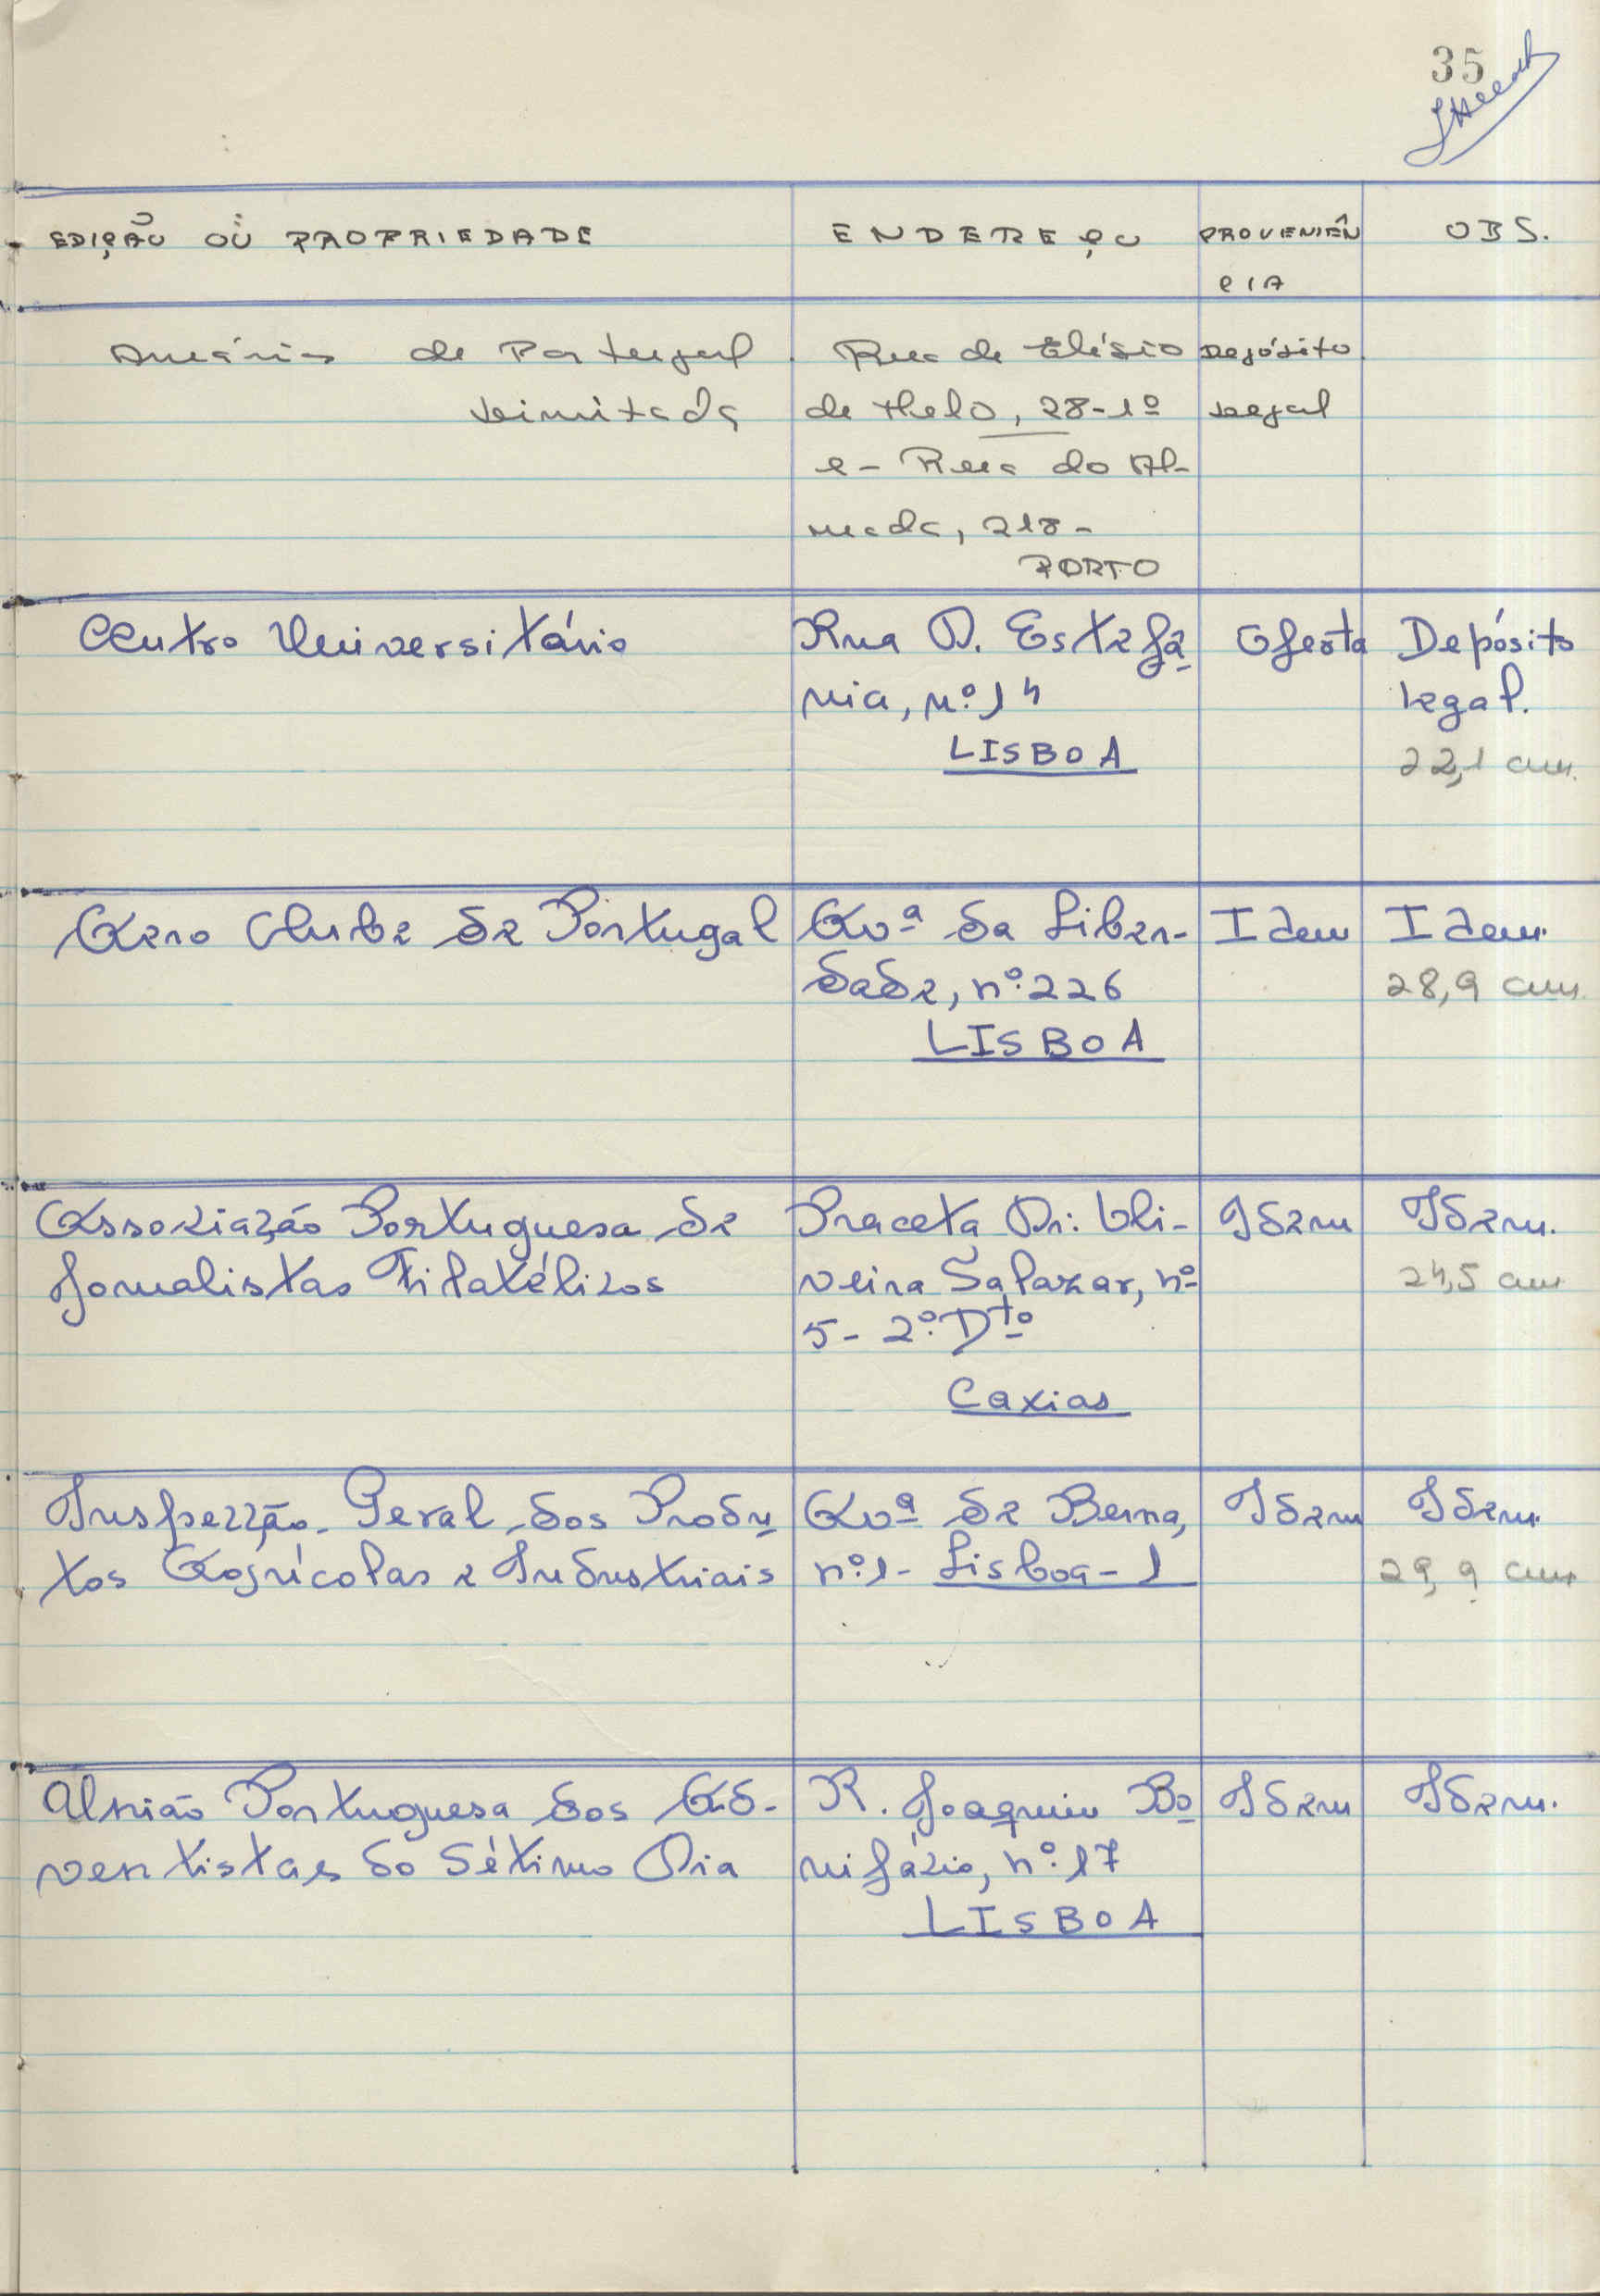 35
EDIÇÃO OU PROPRIEDADE
ENDEREÇO
PROVENIÊN
CIA
OBS.
Anuário de Portugal
Limitada
Rua de Elísio
de Melo, 28-1º
e - Rua do Al-
mada, 218 -
PORTO
Depósito
Legal
Centro Universitário
Rua D. Estefâ
nia, nº 14
LISBOA
Oferta
Depósito
legal.
22,1 cm.
Aero Clube de Portugal
Avª da Liber-
dade, nº 226
LISBOA
Idem
Idem.
28,9 cm.
Associação Portuguesa de
Jornalistas Filatélicos
Praceta Dr. Oli-
veira Salazar, nº
5 - 2º Dtº
Caxias
Idem
Idem.
24,5 cm
Inspecção Geral dos Produ
tos Agrícolas e Industriais
Avª de Berna,
nº 1 - Lisboa - 1
Idem
Idem.
29,9 cm
União Portuguesa dos Ad-
ventistas do Sétimo Dia
R. Joaquim Bo
nifácio, nº 17
LISBOA
Idem
Idem.